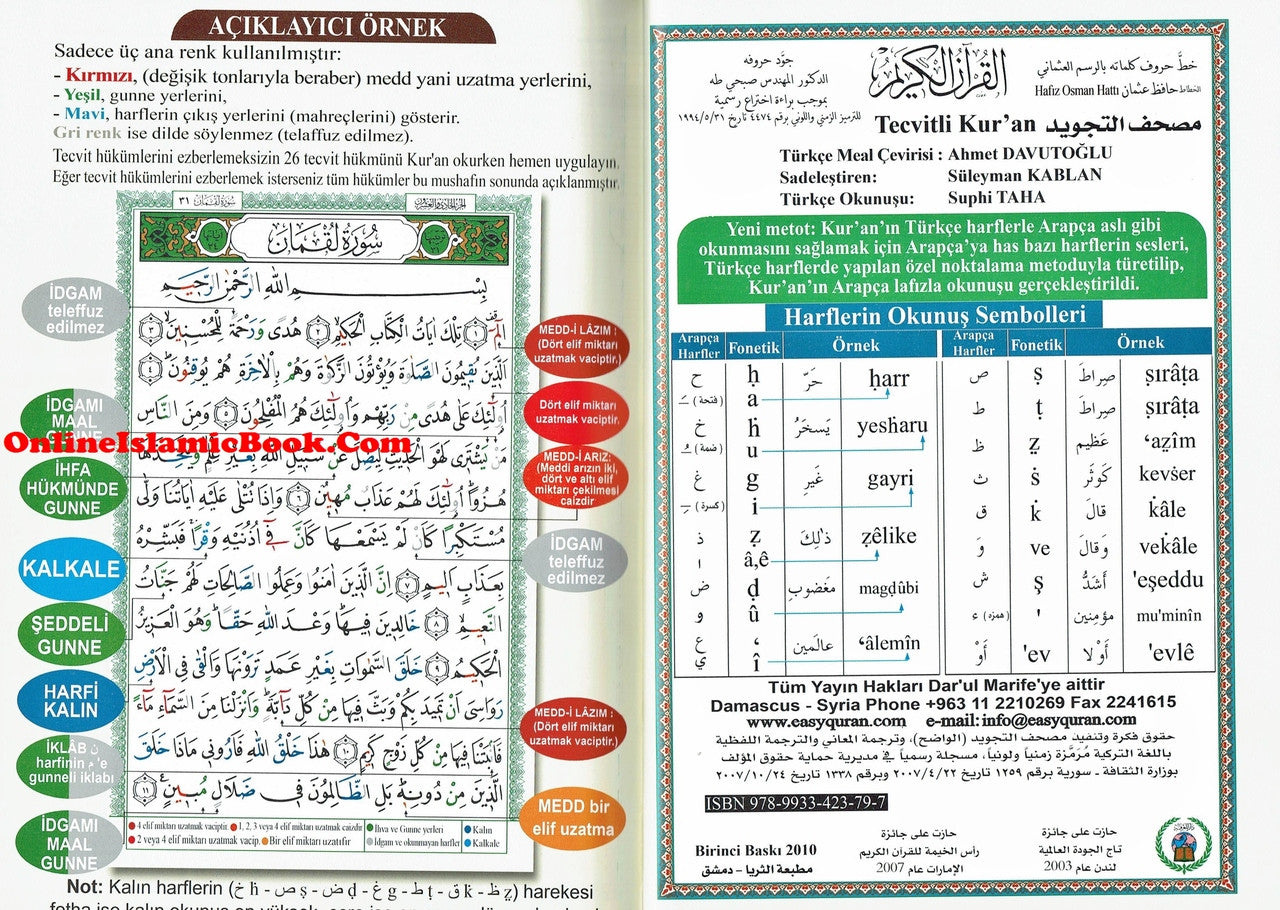 AÇIKLAYICI ÖRNEK
Sadece üç ana renk kullanılmıştır:
- Kırmızı, (değişik tonlarıyla beraber) medd yani uzatma yerlerini,
- Yeşil, gunne yerlerini,
- Mavi, harflerin çıkış yerlerini (mahreçlerini) gösterir.
Gri renk ise dilde söylenmez (telaffuz edilmez).
Tecvit hükümlerini ezberlemeksizin 26 tecvit hükmünü Kur'an okurken hemen uygulayın,
Eğer tecvit hükümlerini ezberlemek isterseniz tüm hükümler bu mushafın sonunda açıklanmıştır,
٣١ سُورَة لُقْمَان
سُورَةُ لُقْمَانَ
بِسْمِ اللهِ الرَّحْمٰنِ الرَّحِيمِ
الٓمٓ ﴿١﴾ تِلْكَ اٰيَاتُ الْكِتَابِ الْحَكِيمِ ﴿٢﴾ هُدًى وَرَحْمَةً لِلْمُحْسِنِينَ ﴿٣﴾
اَلَّذِينَ يُقِيمُونَ الصَّلٰوةَ وَيُؤْتُونَ الزَّكٰوةَ وَهُمْ بِالْاٰخِرَةِ هُمْ يُوقِنُونَ ﴿٤﴾
اُولٰٓئِكَ عَلٰى هُدًى مِنْ رَبِّهِمْ وَاُولٰٓئِكَ هُمُ الْمُفْلِحُونَ ﴿٥﴾ وَمِنَ النَّاسِ
مَنْ يَشْتَرِى لَهْوَ الْحَدِيثِ لِيُضِلَّ عَنْ سَبِيلِ اللهِ بِغَيْرِ عِلْمٍ وَيَتَّخِذَهَا
هُزُوًا اُولٰٓئِكَ لَهُمْ عَذَابٌ مُهِينٌ ﴿٦﴾ وَاِذَا تُتْلٰى عَلَيْهِ اٰيَاتُنَا وَلّٰى
مُسْتَكْبِرًا كَاَنْ لَمْ يَسْمَعْهَا كَاَنَّ فِىٓ اُذُنَيْهِ وَقْرًا فَبَشِّرْهُ
بِعَذَابٍ اَلِيمٍ ﴿٧﴾ اِنَّ الَّذِينَ اٰمَنُوا وَعَمِلُوا الصَّالِحَاتِ لَهُمْ جَنَّاتُ
النَّعِيمِ ﴿٨﴾ خَالِدِينَ فِيهَا وَعْدَ اللهِ حَقًّا وَهُوَ الْعَزِيزُ
الْحَكِيمُ ﴿٩﴾ خَلَقَ السَّمٰوَاتِ بِغَيْرِ عَمَدٍ تَرَوْنَهَا وَاَلْقٰى فِى الْاَرْضِ
رَوَاسِىَ اَنْ تَمِيدَ بِكُمْ وَبَثَّ فِيهَا مِنْ كُلِّ دَآبَّةٍ وَاَنْزَلْنَا مِنَ السَّمَآءِ مَآءً
فَاَنْبَتْنَا فِيهَا مِنْ كُلِّ زَوْجٍ كَرِيمٍ ﴿١٠﴾ هٰذَا خَلْقُ اللهِ فَاَرُونِى مَاذَا خَلَقَ
الَّذِينَ مِنْ دُونِهِ بَلِ الظَّالِمُونَ فِى ضَلَالٍ مُبِينٍ ﴿١١﴾
İDGAM
teleffuz
edilmez
İDGAMI
MAAL
GUNNE
OnlineIslamicBook.Com
İHFA
HÜKMÜNDE
GUNNE
KALKALE
ŞEDDELİ
GUNNE
HARFİ
KALIN
İKLÂB ن
harfinin م 'e
gunneli iklabı
İDGAMI
MAAL
GUNNE
MEDD-İ LÂZIM :
(Dört elif miktarı
uzatmak vaciptir.)
Dört elif miktarı
uzatmak vaciptir.
MEDD-İ ARIZ:
(Meddi arızın iki,
dört ve altı elif
miktarı çekilmesi
caizdir
İDGAM
teleffuz
edilmez
MEDD-İ LÂZIM :
(Dört elif miktarı
uzatmak vaciptir.)
MEDD bir
elif uzatma
4 elif miktarı uzatmak vaciptir. 1, 2, 3 veya 4 elif miktarı uzatmak caizdir İhva ve Gunne yerleri Kalın
2 veya 4 elif miktarı uzatmak vacip. Bir elif miktarı uzatıfır İdgam ve okunmayan harfler Kalkale
Not: Kalın harflerin (خ ḣ - ص ş - ض ḍ - غ g - ط ṭ - ق k - ظ ẓ) harekesi
جوَّد حروفه
الدكتور المهندس صبحي طه
بموجب براءة اختراع رسمية
للترميز الزمني واللوني برقم ٤٤٧٤ تاريخ ١٩٩٤/٥/٣١
القرآن الكريم
خطَّ حروف كلماته بالرسم العثماني
الخطاط حافظ عثمان Hafız Osman Hattı
Tecvitli Kur'an مصحف التجويد
Türkçe Meal Çevirisi : Ahmet DAVUTOĞLU
Sadeleştiren: Süleyman KABLAN
Türkçe Okunuşu: Suphi TAHA
Yeni metot: Kur'an'ın Türkçe harflerle Arapça aslı gibi
okunmasını sağlamak için Arapça'ya has bazı harflerin sesleri,
Türkçe harflerde yapılan özel noktalama metoduyla türetilip,
Kur'an'ın Arapça lafızla okunuşu gerçekleştirildi.
Harflerin Okunuş Sembolleri
Arapça Harfler Fonetik Örnek
ح ḥ حَرَّ ḥarr
(فتحة) a
خ ḣ يَسْخَرُ yesḣaru
(ضمة) u
غ g غَيْرِ gayri
(كسرة) i
ذ ẕ ذٰلِكَ ẕêlike
ا â,ê
ض ḍ مَغْضُوبِ magḍûbi
و û
ع ‘ عَالَمِينَ ‘âlemîn
ي î
Arapça Harfler Fonetik Örnek
ص ṣ صِرَاطَ ṣırâṭa
ط ṭ صِرَاطَ ṣırâṭa
ظ ẓ عَظِيم ‘aẓîm
ث ṡ كَوْثَرَ kevṡer
ق ḳ قَالَ ḳâle
وَ ve وَقَالَ veḳâle
ش ş أَشَدُّ 'eşeddu
(همزة) ء ' مُؤْمِنِين mu'minîn
أَوْ 'ev أَوْلَا 'evlê
Tüm Yayın Hakları Dar'ul Marife'ye aittir
Damascus - Syria Phone +963 11 2210269 Fax 2241615
www.easyquran.com e-mail:info@easyquran.com
حقوق فكرة وتنفيذ مصحف التجويد (الواضح)، وترجمة المعاني والترجمة اللفظية
باللغة التركية مُرَمَّزة زمنياً ولونياً، مسجلة رسمياً في مديرية حماية حقوق المؤلف
بوزارة الثقافة - سورية برقم ١٢٥٩ تاريخ ٢٠٠٧/٤/٢٢ وبرقم ١٣٣٨ تاريخ ٢٠٠٧/١٠/٢٤
ISBN 978-9933-423-79-7
Birinci Baskı 2010
مطبعة الثريا - دمشق
حازت على جائزة
رأس الخيمة للقرآن الكريم
الإمارات عام 2007
حازت على جائزة
تاج الجودة العالمية
لندن عام 2003